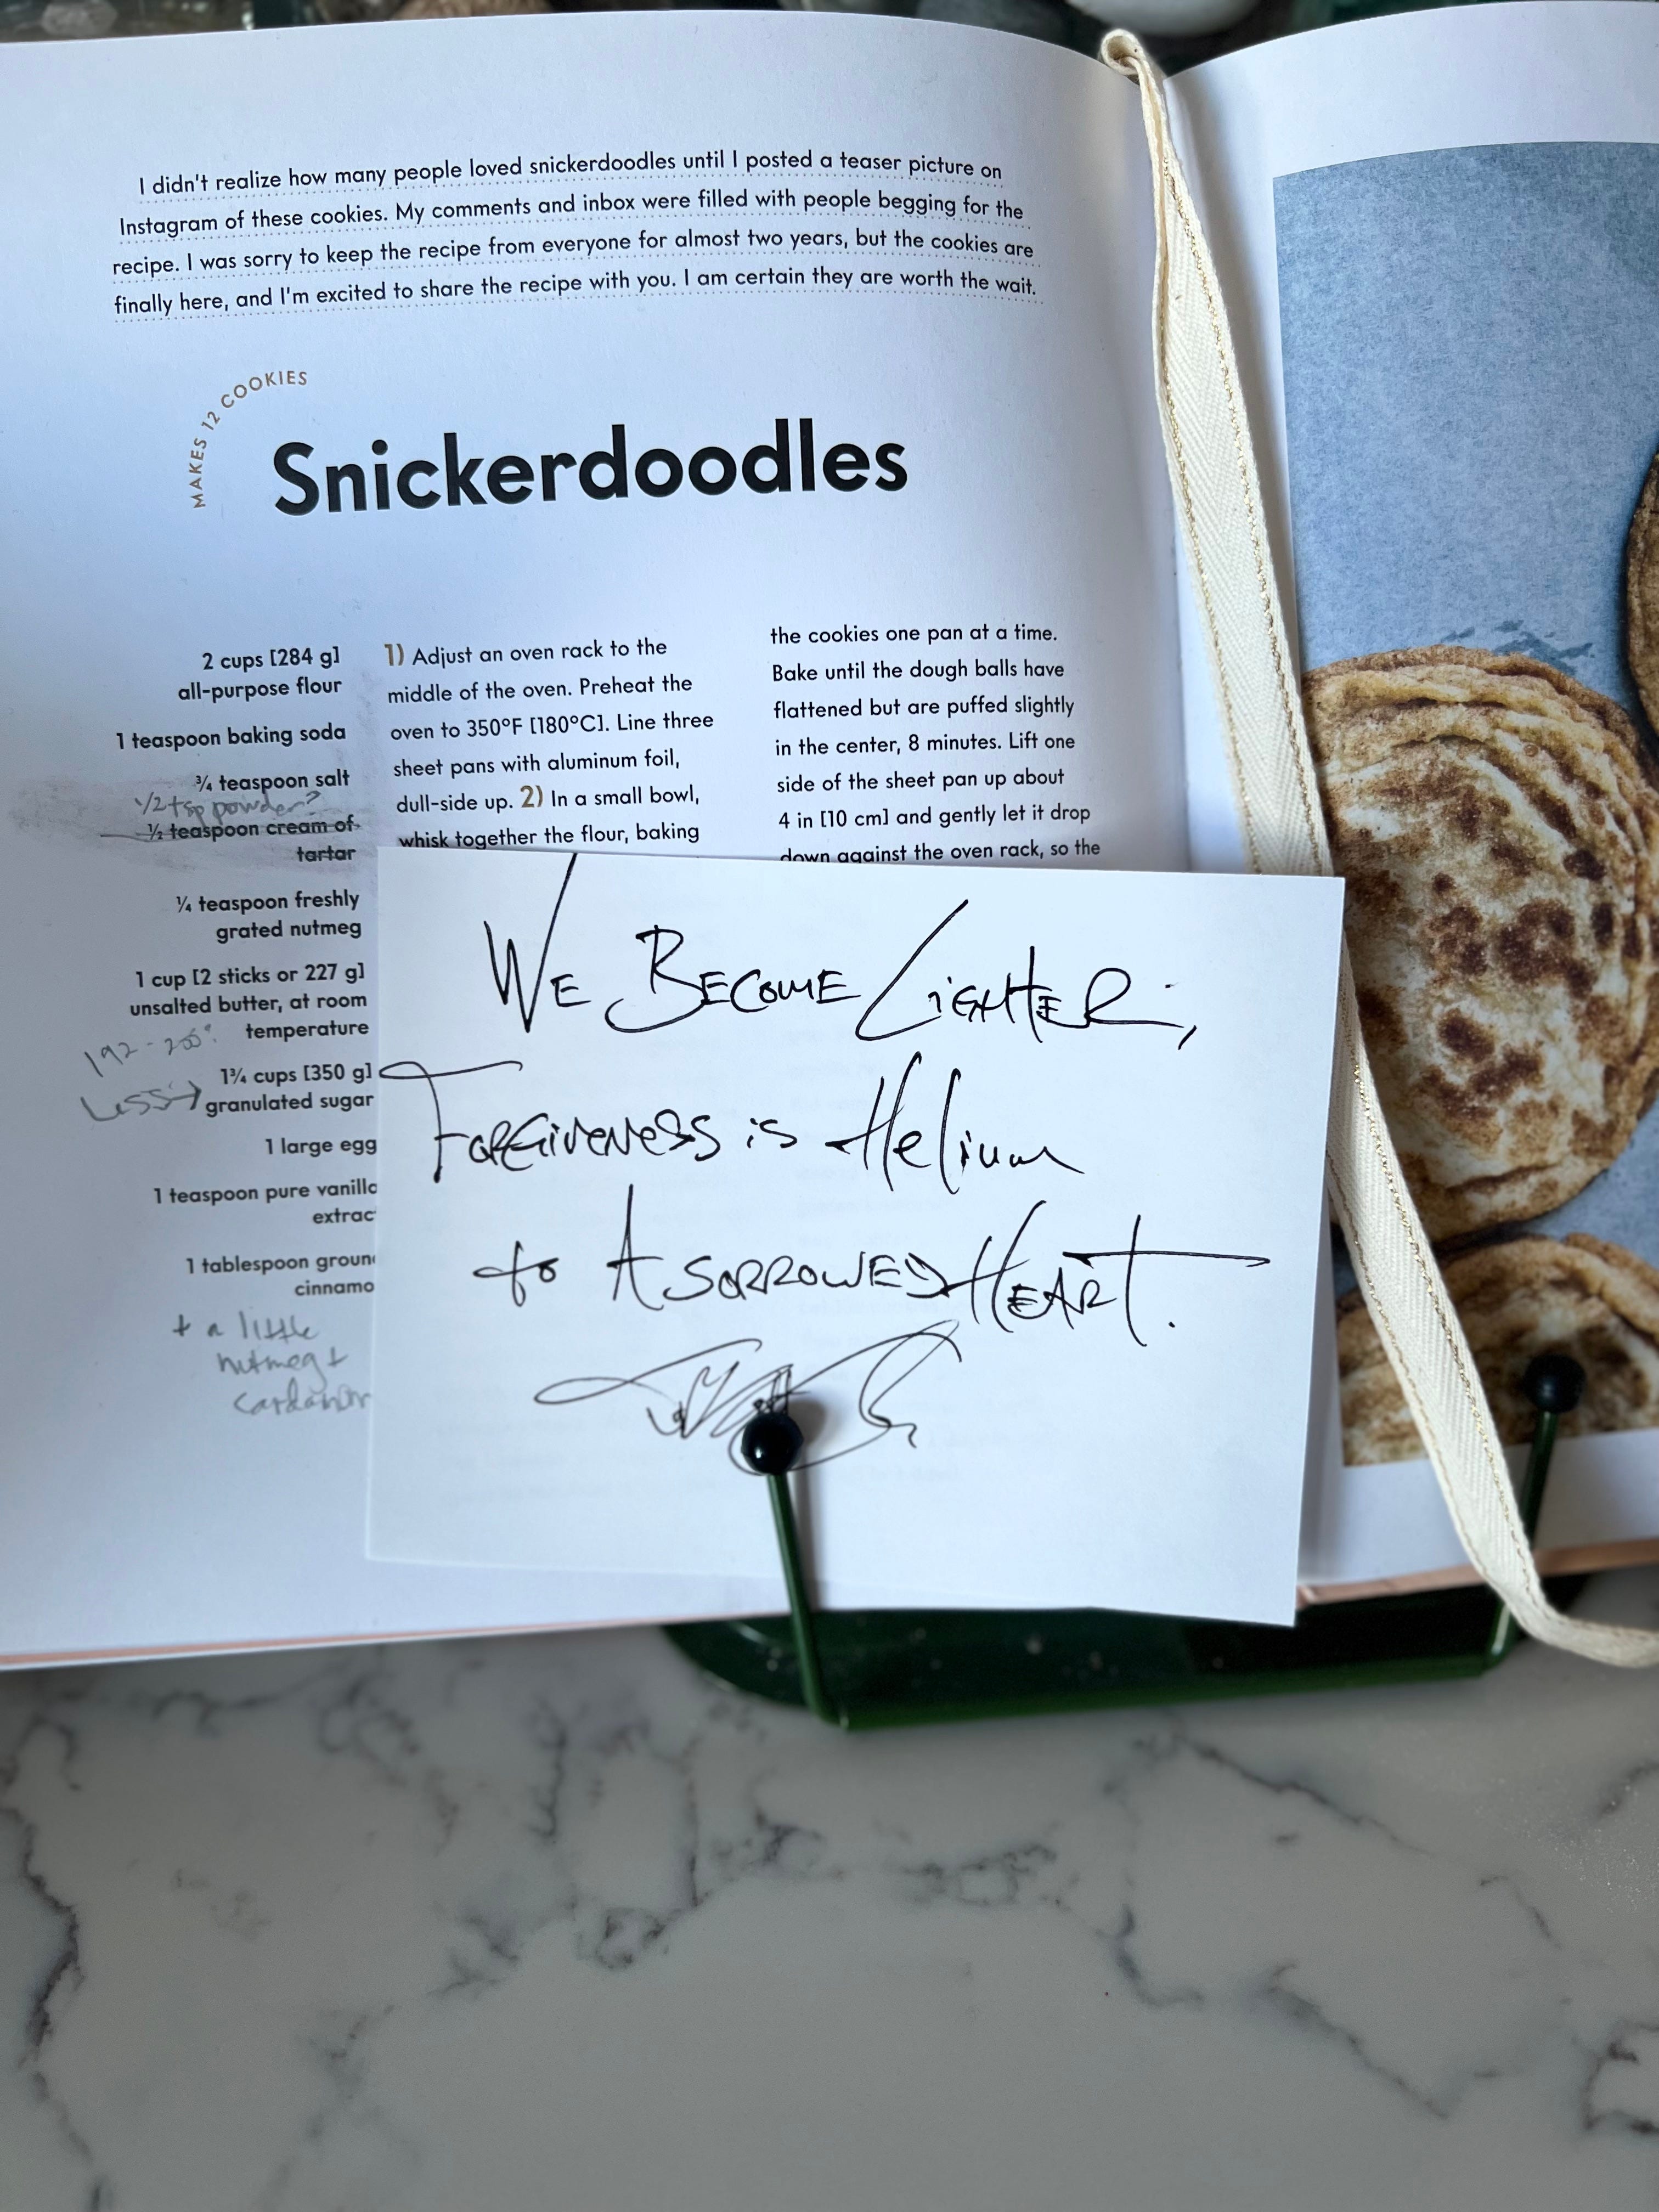 I didn't realize how many people loved snickerdoodles until I posted a teaser picture on
Instagram of these cookies. My comments and inbox were filled with people begging for the
recipe. I was sorry to keep the recipe from everyone for almost two years, but the cookies are
finally here, and I'm excited to share the recipe with you. I am certain they are worth the wait.
MAKES 12 COOKIES
Snickerdoodles
2 cups [284 g]
all-purpose flour
1 teaspoon baking soda
¾ teaspoon salt
1/2 tsp powder?
½ teaspoon cream of
tartar
¼ teaspoon freshly
grated nutmeg
1 cup [2 sticks or 227 g]
unsalted butter, at room
temperature
192-200°
1¾ cups [350 g]
Less→ granulated sugar
1 large egg
1 teaspoon pure vanilla
extrac
1 tablespoon groun
cinnamo
+ a little
nutmeg +
1) Adjust an oven rack to the
middle of the oven. Preheat the
oven to 350°F [180°C]. Line three
sheet pans with aluminum foil,
dull-side up. 2) In a small bowl,
whisk together the flour, baking
the cookies one pan at a time.
Bake until the dough balls have
flattened but are puffed slightly
in the center, 8 minutes. Lift one
side of the sheet pan up about
4 in [10 cm] and gently let it drop
down against the oven rack, so the
WE BECOME LIGHTER;
FORGIVENESS is Helium
to A SORROWED HEART.